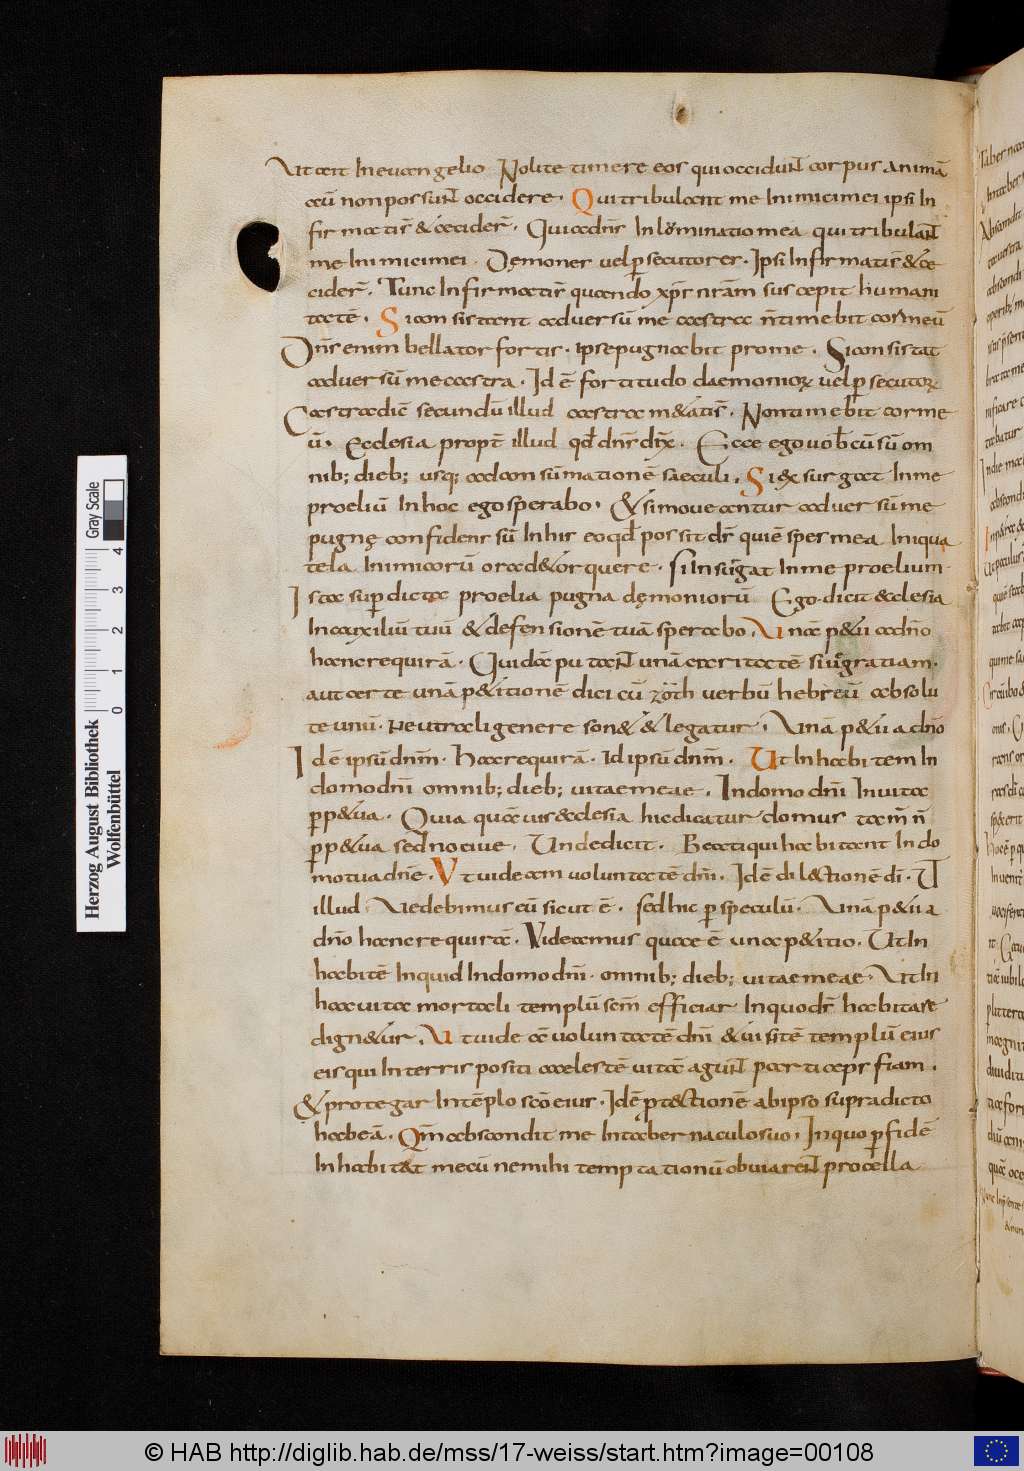 Ut ait In evangelio Nolite timere eos qui occidunt corpus animā
aū non possunt occidere. Qui tribulant me Inimici mei ipsi In
firmatis̄ & cecider̄. Qui adn̄s Inlūminatio mea qui tribulant
me Inimici mei. Demones vel ꝑsecutores. Ipsi Infirmatis̄ & ce
cider̄. Tunc Infirmatis̄ quando xp̄s nr̄am suscepit humani
tatē. Si consistant adversū me castra n̄ timebit cor meū
Dn̄s enim bellator fortis. ipse pugnabit pro me. Si consistat
adversū me castra. Id ē fortitudo daemoniorꝝ vel ꝑsecutorꝝ
Castra diē secundū illud castra m&atis̄. Non timebit cor me
ū. Ecclesia propt̄ illud qd̄ dn̄s dix̄. Ecce ego vob̄cū sū om
nib; dieb; usq; ad consumationē saeculi. Si exsurgat In me
proeliū In hoc ego sperabo. & si moveantur adversū me
pugnę confidens sū In his eo qd̄ possit dr̄ quiē spes mea Iniqua
tela Inimicorū orad & orquere. si Insurgat In me proelium.
Ista sup̄dicta proelia pugna dęmoniorū Ego dicit ecclesia
In auxiliū tuū & defensionē tuā sperabo. Unā p&ii a dn̄o
hanc requirā. Quidā putant unā &caritatē siū gratiam.
aut certe unā p&itionē dici cū zoth verbū hebreū absolu
te unū. Neutrali genere son& & legatur. Unā p&ii a dn̄o
Id ē ipsū dn̄m. Hanc requirā. Id ipsū dn̄m. Ut Inhabitem In
domo dn̄i omnib; dieb; vitae meae. In domo dn̄i Invita
ꝑp&ua. Quia quāvis ecclesia hic dicatur domus tam̄ n̄
ꝑp&ua sed nociue. Unde dicit. Beati qui habitant In do
mo tua dn̄e. Ut videam voluntatē dn̄i. Id ē dilectionē dī. Ut
illud. Videbimus eū sicut ē. sed hic ꝑ speculū. Unā p&ii a
dn̄o hanc requirā. Videamus quae ē una p&itio. Ut In
habitē Inquid In domo dn̄i. omnib; dieb; vitae meae. Ut In
hac vita mortali templū sem̄ efficiar In quo dr̄ habitare
dign&ur. Ut videā voluntatē dn̄i & visitē templū eius
eis qui In terris positi caelestē vitā agunt particeps fiam.
& protegar In tēplo scō eius. Id ē pt&ctionē ab ipso supradicto
habeā. Qm̄ abscondit me In tabernaculo suo. In quo ꝑ fidē
Inhabitat mecū ne mihi temptationū obviarent procella
Herzog August Bibliothek
Wolfenbüttel
0 1 2 3 4
Gray Scale
© HAB http://diglib.hab.de/mss/17-weiss/start.htm?image=00108